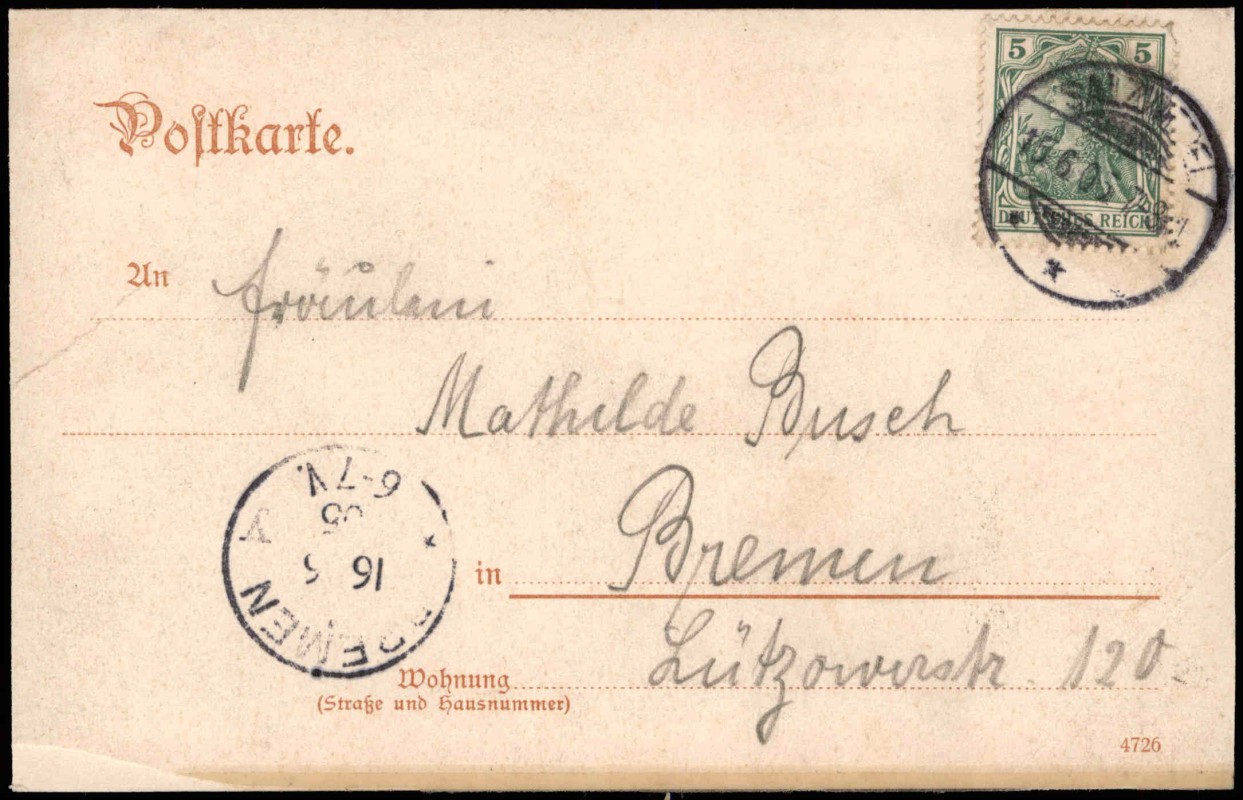 Postkarte.
5 5
SALZWEDEL
DEUTSCHES REICH
An Fräulein
Mathilde Busch
in Bremen
BREMEN
16 6
05
6-7V.
Wohnung Lützowerstr. 120.
(Straße und Hausnummer)
4726